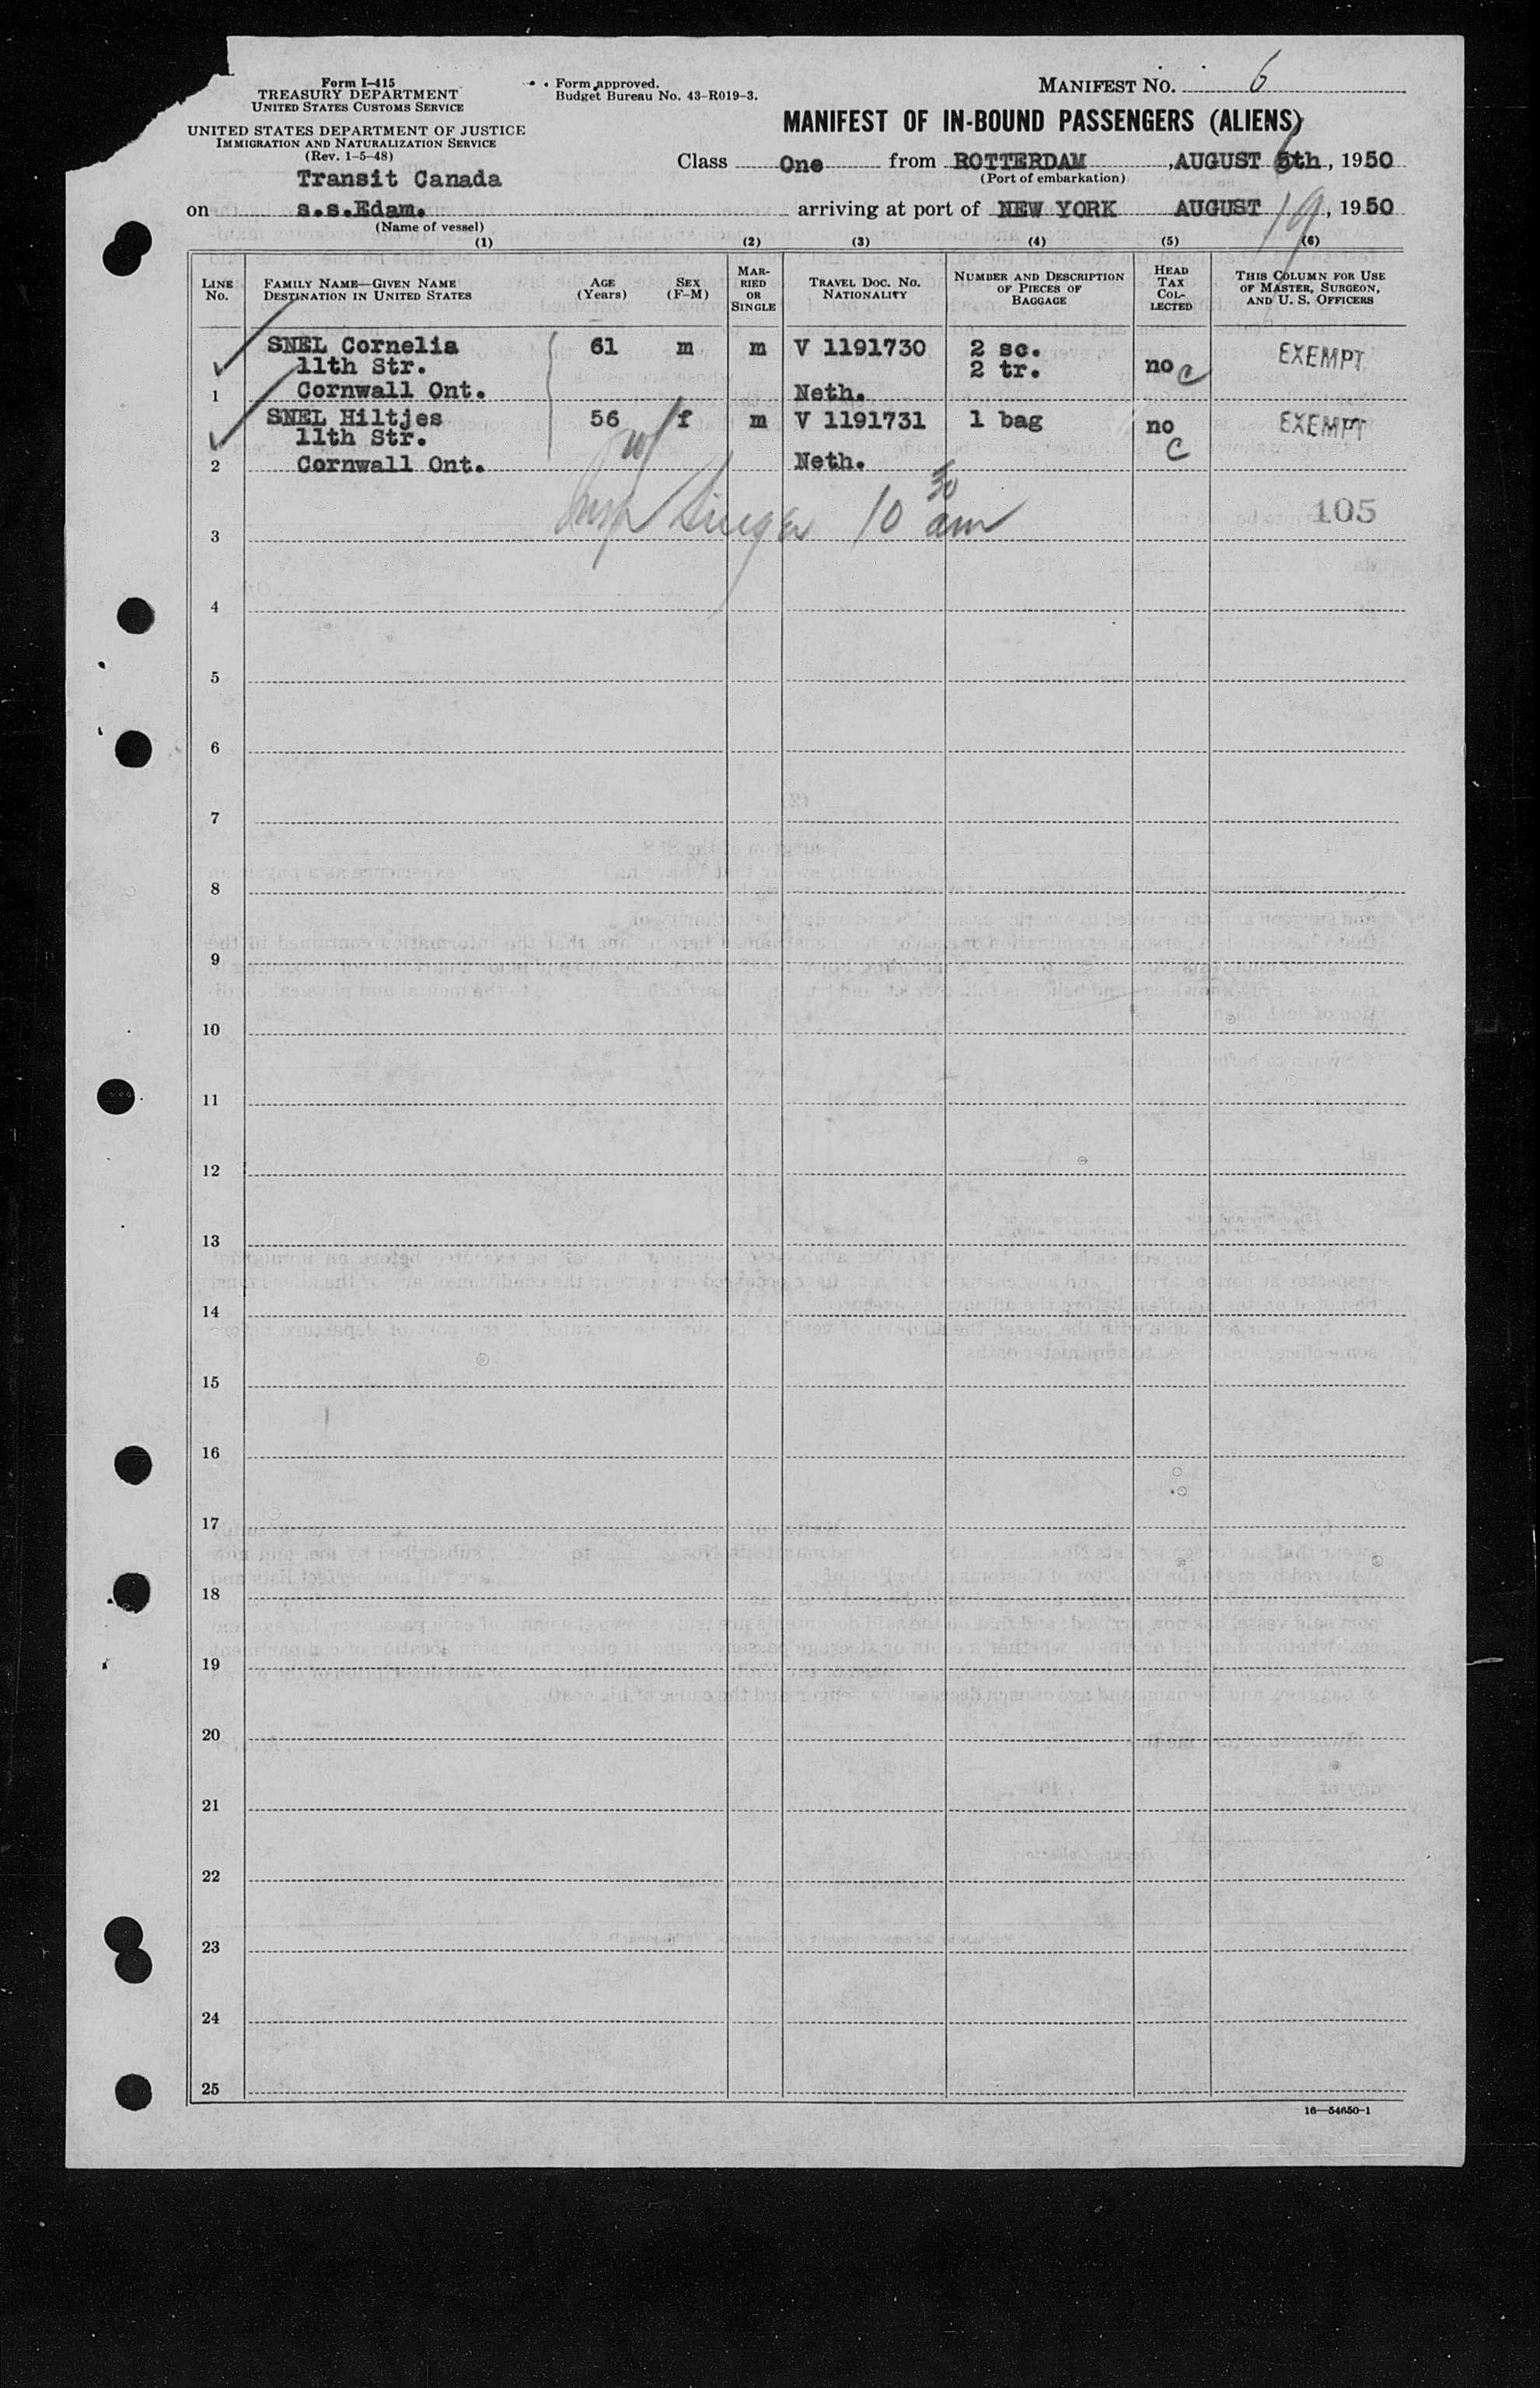 Form I-415
TREASURY DEPARTMENT
UNITED STATES CUSTOMS SERVICE
UNITED STATES DEPARTMENT OF JUSTICE
IMMIGRATION AND NATURALIZATION SERVICE
(Rev. 1-5-48)
Form approved.
Budget Bureau No. 43-R019-3.
MANIFEST NO. 6
MANIFEST OF IN-BOUND PASSENGERS (ALIENS)
Class One from ROTTERDAM, AUGUST 6th, 1950
(Port of embarkation)
Transit Canada
on s.s.Edam. arriving at port of NEW YORK AUGUST 19, 1950
(Name of vessel)
(1) (2) (3) (4) (5) (6)
LINE NO.
FAMILY NAME—GIVEN NAME
DESTINATION IN UNITED STATES
AGE (Years)
SEX (F-M)
MARRIED OR SINGLE
TRAVEL DOC. NO.
NATIONALITY
NUMBER AND DESCRIPTION OF PIECES OF BAGGAGE
HEAD TAX COLLECTED
THIS COLUMN FOR USE OF MASTER, SURGEON, AND U. S. OFFICERS
SNEL Cornelis 61 m m V 1191730 2 sc. EXEMPT
11th Str. 2 tr. no c
1 Cornwall Ont. Neth.
SNEL Hiltjes 56 f m V 1191731 1 bag no EXEMPT
11th Str. c
2 Cornwall Ont. Neth.
Insp Singer 10 30 am 105
3
4
5
6
7
8
9
10
11
12
13
14
15
16
17
18
19
20
21
22
23
24
25
16—54650-1